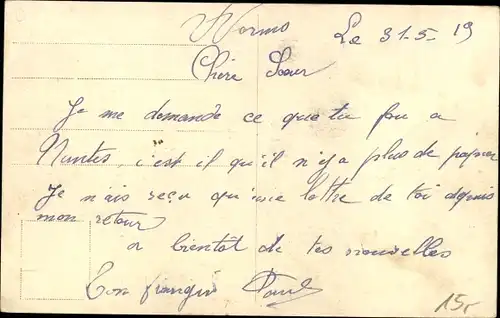 Worms
Le 31-5-19
Chère Soeur
Je me demande ce que tu fou a
Nantes, c'est il qu'il n'y a plus de papier
Je n'ais reçu qu'une lettre de toi depuis
mon retour
a bientôt de tes nouvelles
Ton frangin Paul
15